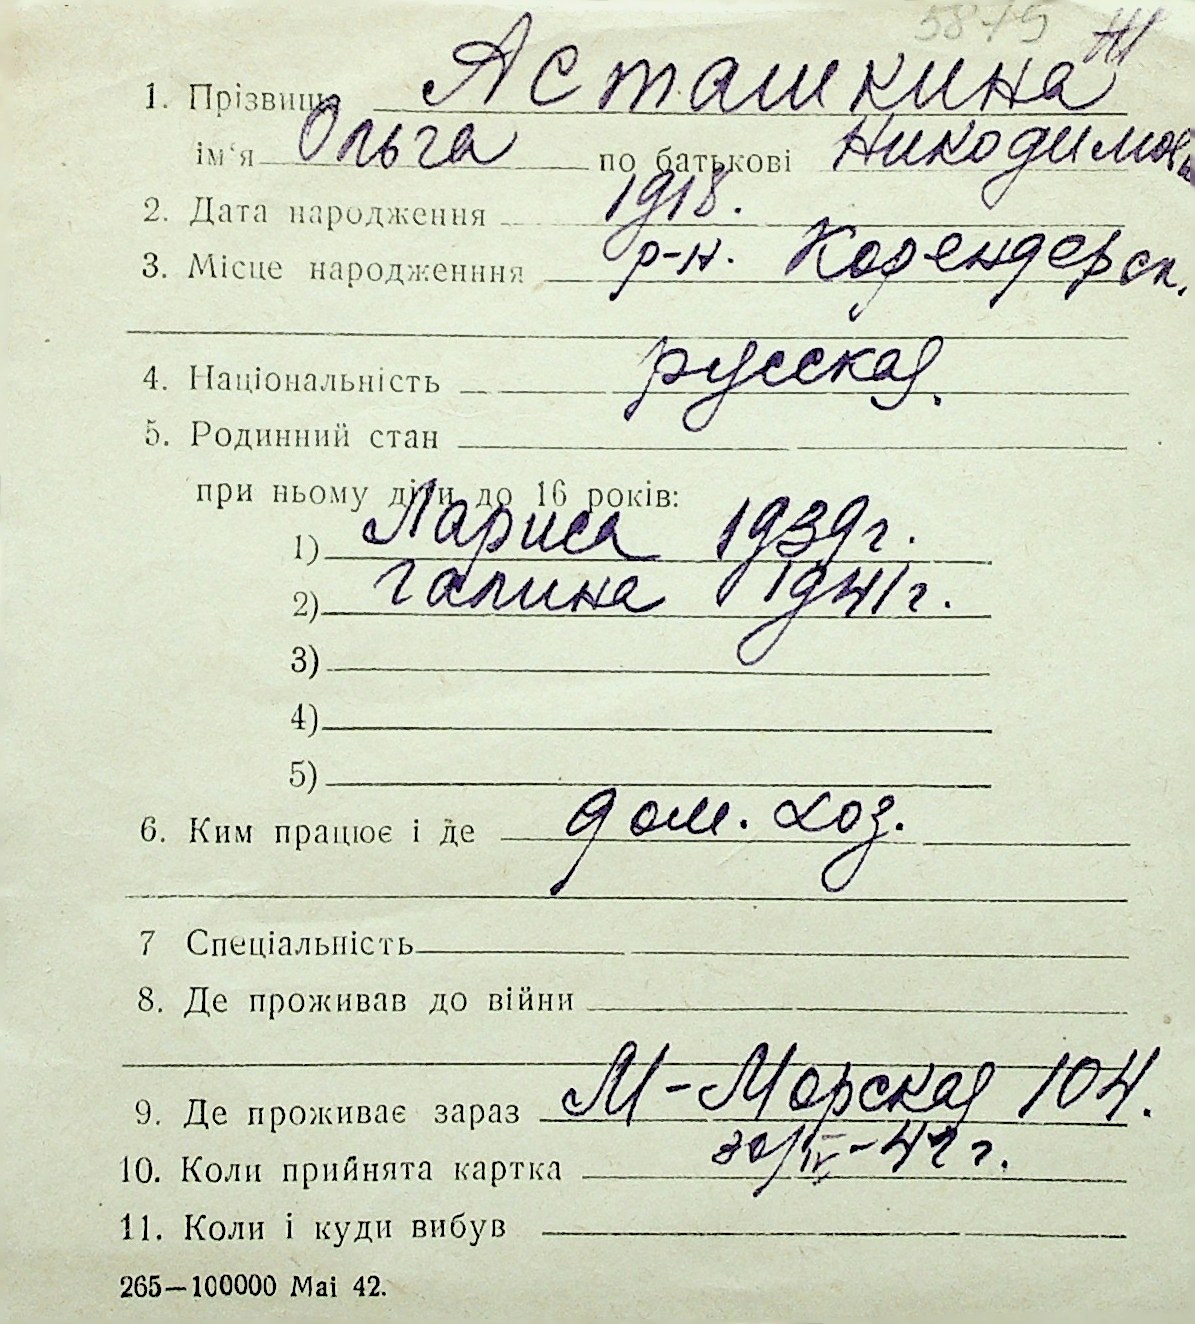 5879
1. Прізвище Асташкина
ім'я Ольга по батькові Никодимовн
2. Дата народження 1918.
3. Місце народженння р-н. Кодендерск.
4. Національність русская.
5. Родинний стан
при ньому діти до 16 років:
1) Лариса 1939г.
2) Галина 1941г.
3)
4)
5)
6. Ким працює і де дом. хоз.
7 Спеціальність
8. Де проживав до війни
9. Де проживає зараз М-Морская 104.
10. Коли прийнята картка 30/IV-42 г.
11. Коли і куди вибув
265—100000 Mai 42.